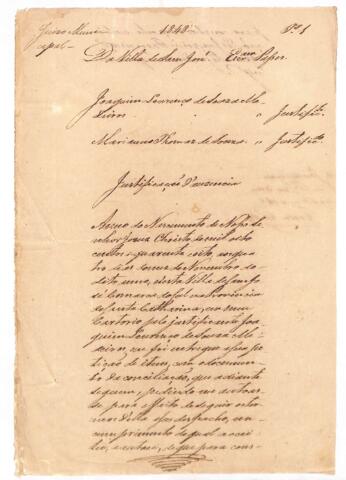 Juizo Muni
cipal
1848
Fs 1
Da Villa de Sam José Escrm
Joaquim Lourenço de Souza Me
deiros " Justific
Marianno Thomaz de Souza " Justific
Justificação d'auzencia
Anno do Nascimento de Nosso Se
nhor Jesus Christo de mil oito
centos e quarenta e oito, aos qua
tro dias do mez de Novembro do
dito anno, nesta Villa de Sam Jo
sé Comarca do Sul da Provincia
de Santa Catharina, em meu
Cartorio pelo justificante Joa
quim Lourenço de Souza Me
deiros me foi entregue a sua pe
tição de itens, com o documen
to de conciliação, que adiante
seguem, pedindo me a autoas
se para effeito de seguir os ter
mos della e seu despacho, em
cumprimento do qual a accei
tei, e autoei, de que para cons